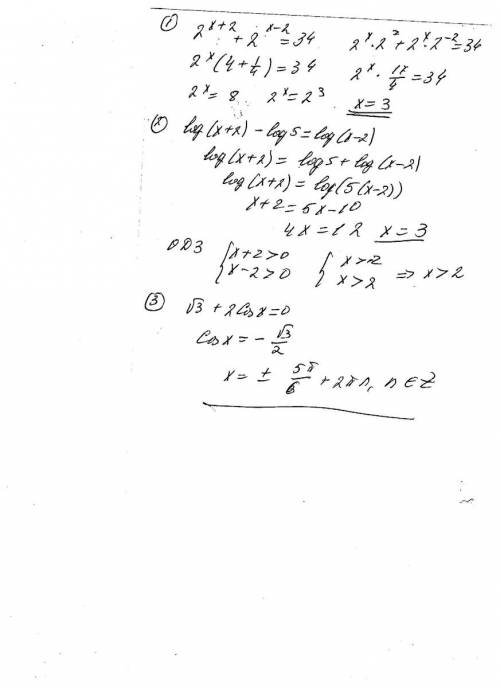 ① 2^{x+2} + 2^{x-2} = 34   2^x · 2^2 + 2^x · 2^{-2} = 34
2^x (4 + 1/4) = 34   2^x · 17/4 = 34
2^x = 8   2^x = 2^3   x = 3
② log(x+2) - log5 = log(x-2)
log(x+2) = log5 + log(x-2)
log(x+2) = log(5(x-2))
x+2 = 5x-10
4x = 12   x = 3
ОДЗ { x+2>0   { x>-2
x-2>0   x>2 ⇒ x>2
③ √3 + 2cosx = 0
cosx = - √3/2
x = ± 5π/6 + 2πn, n ∈ Z